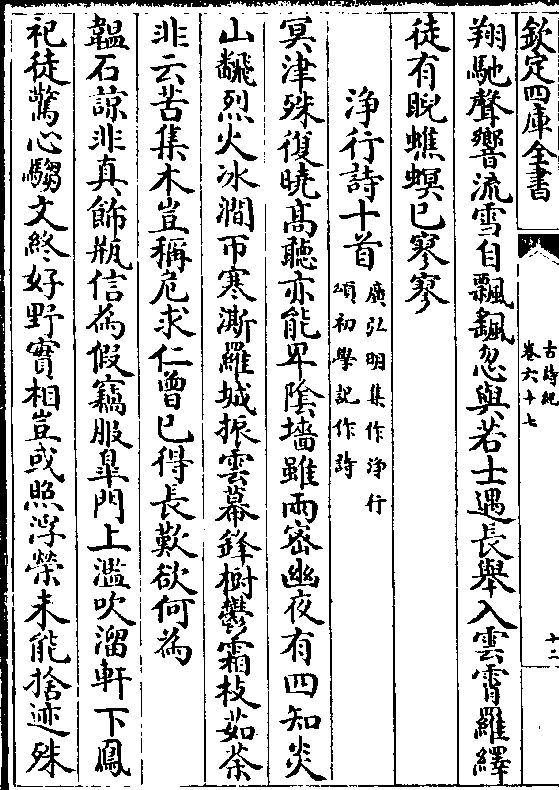 欽定四庫全書
古詩紀
卷六十七
十二
翔馳聲響流雪自飄飖忽與若士遇長舉入雲霄羅繹
徒有睨蟭螟已寥寥
淨行詩十首
廣弘明集作淨行
頌初學記作詩
冥津殊復曉高聽亦能卑陰墻雖雨密幽夜有四知炎
山飜烈火冰澗帀寒澌羅城振雲幕鋒樹鬱霜枝茹荼
非云苦集木豈稱危求仁曾已得長歎欲何為
韞石諒非真飾瓶信為假竊服臯門上濫吹溜軒下鳳
祀徒驚心騶文終好野實相豈或照浮榮未能捨迹殊